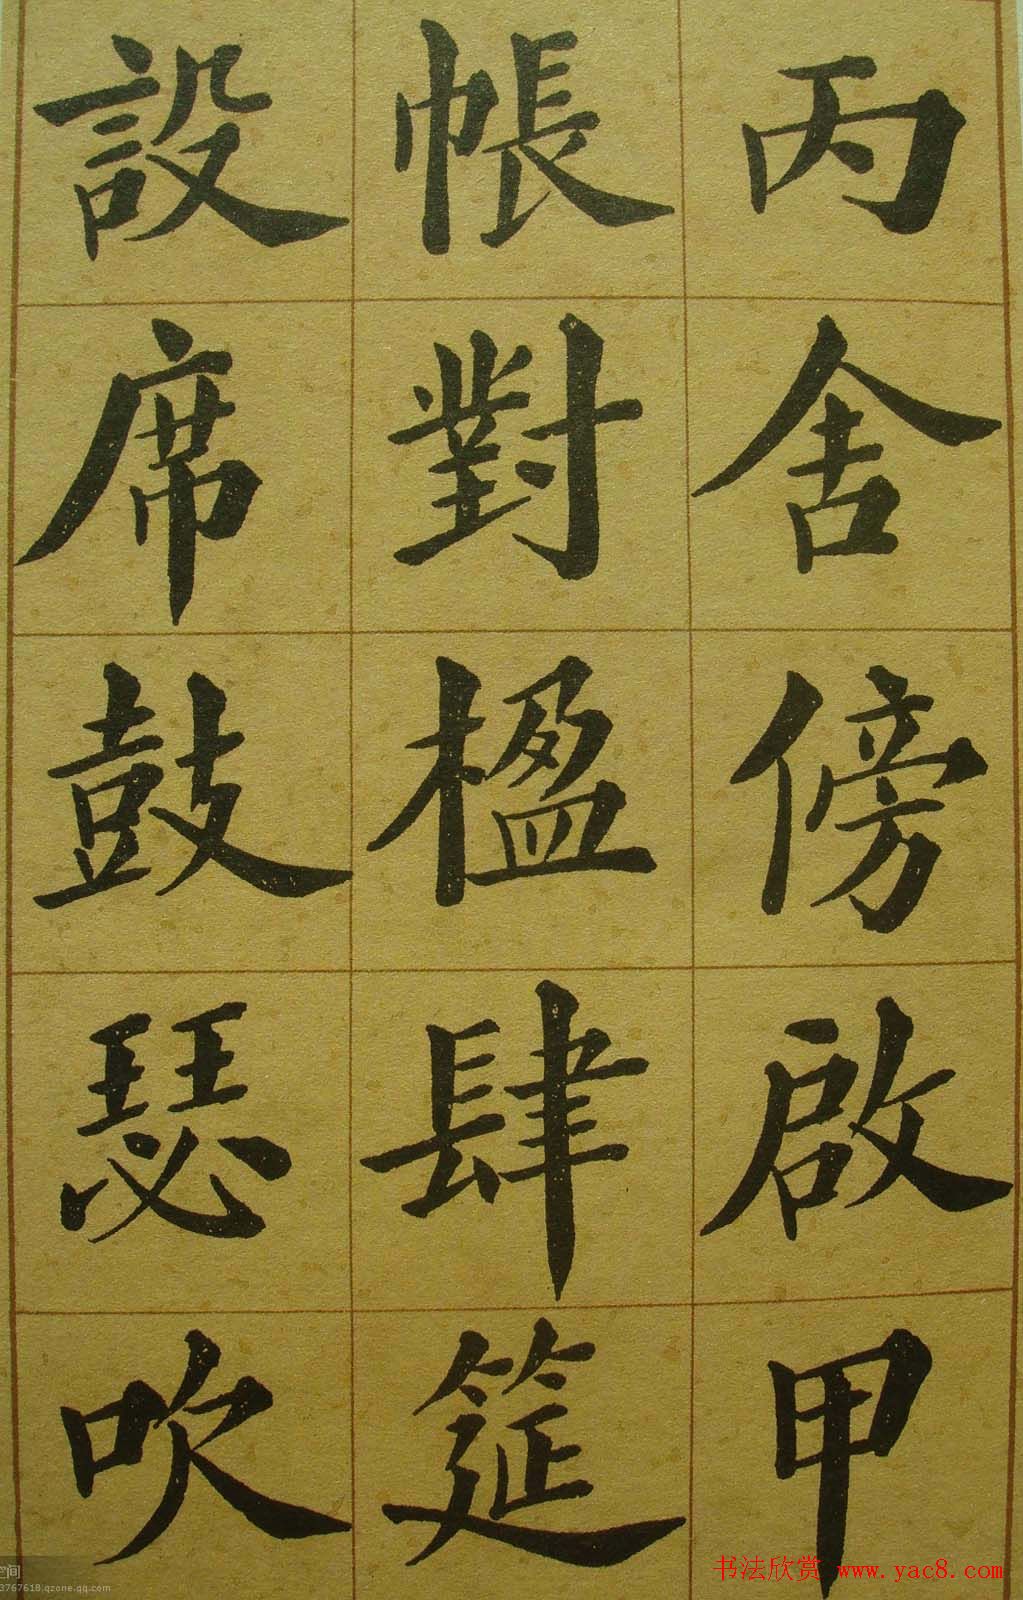 丙舍傍啟甲
帳對楹肆筵
設席鼓瑟吹
书法欣赏 www.yac8.com
空间
3767618.qzone.qq.com